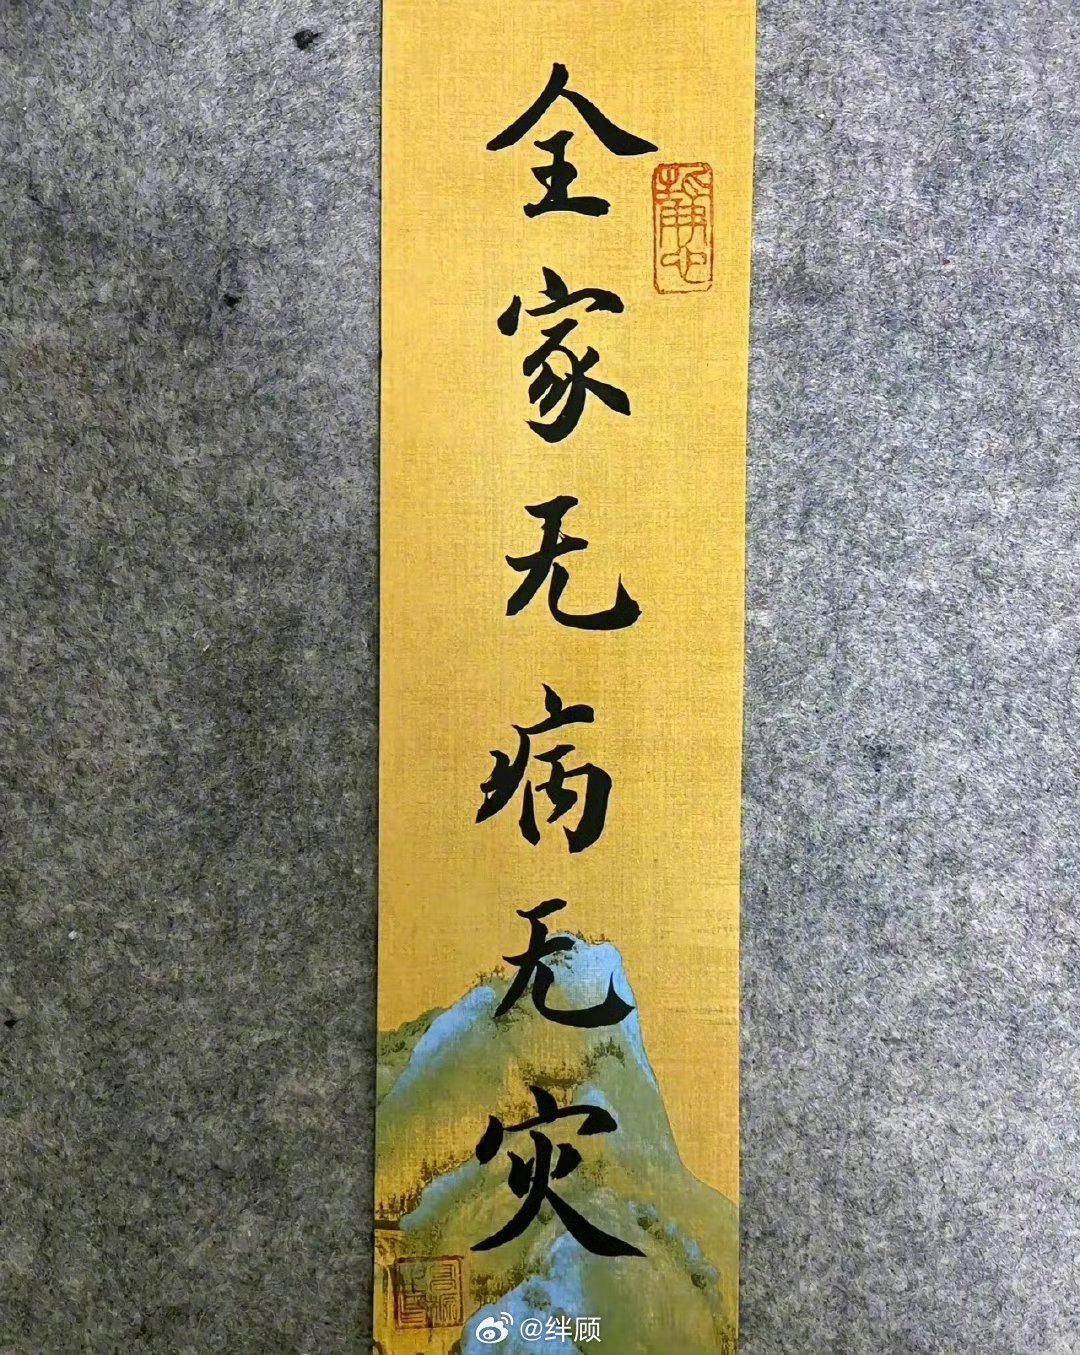 全家无病无灾
@绊顾